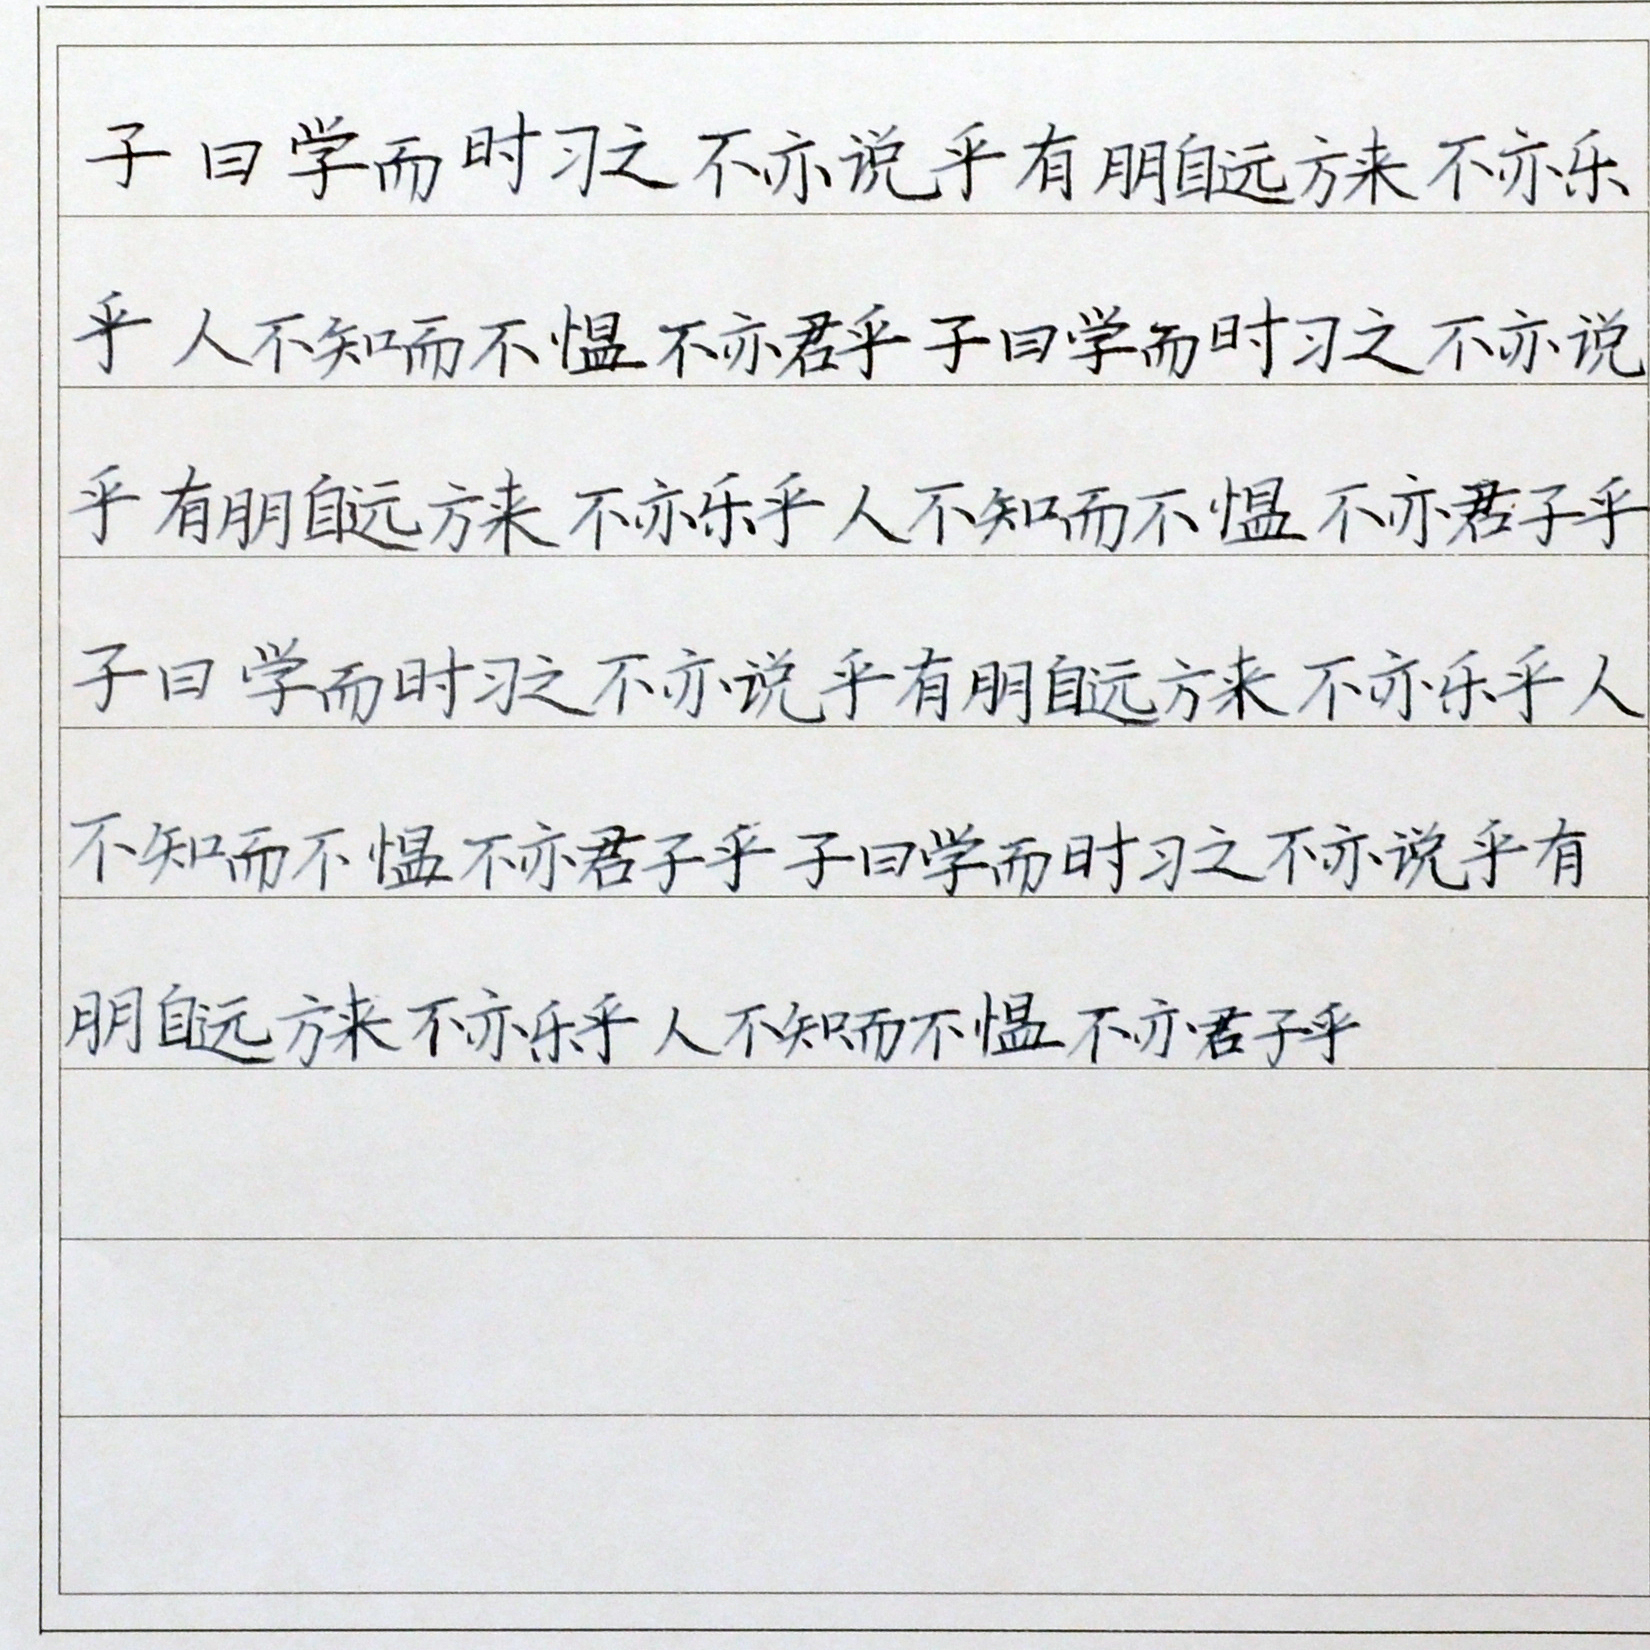 子曰学而时习之不亦说乎有朋自远方来不亦乐
乎人不知而不愠不亦君乎子曰学而时习之不亦说
乎有朋自远方来不亦乐乎人不知而不愠不亦君子乎
子曰学而时习之不亦说乎有朋自远方来不亦乐乎人
不知而不愠不亦君子乎子曰学而时习之不亦说乎有
朋自远方来不亦乐乎人不知而不愠不亦君子乎